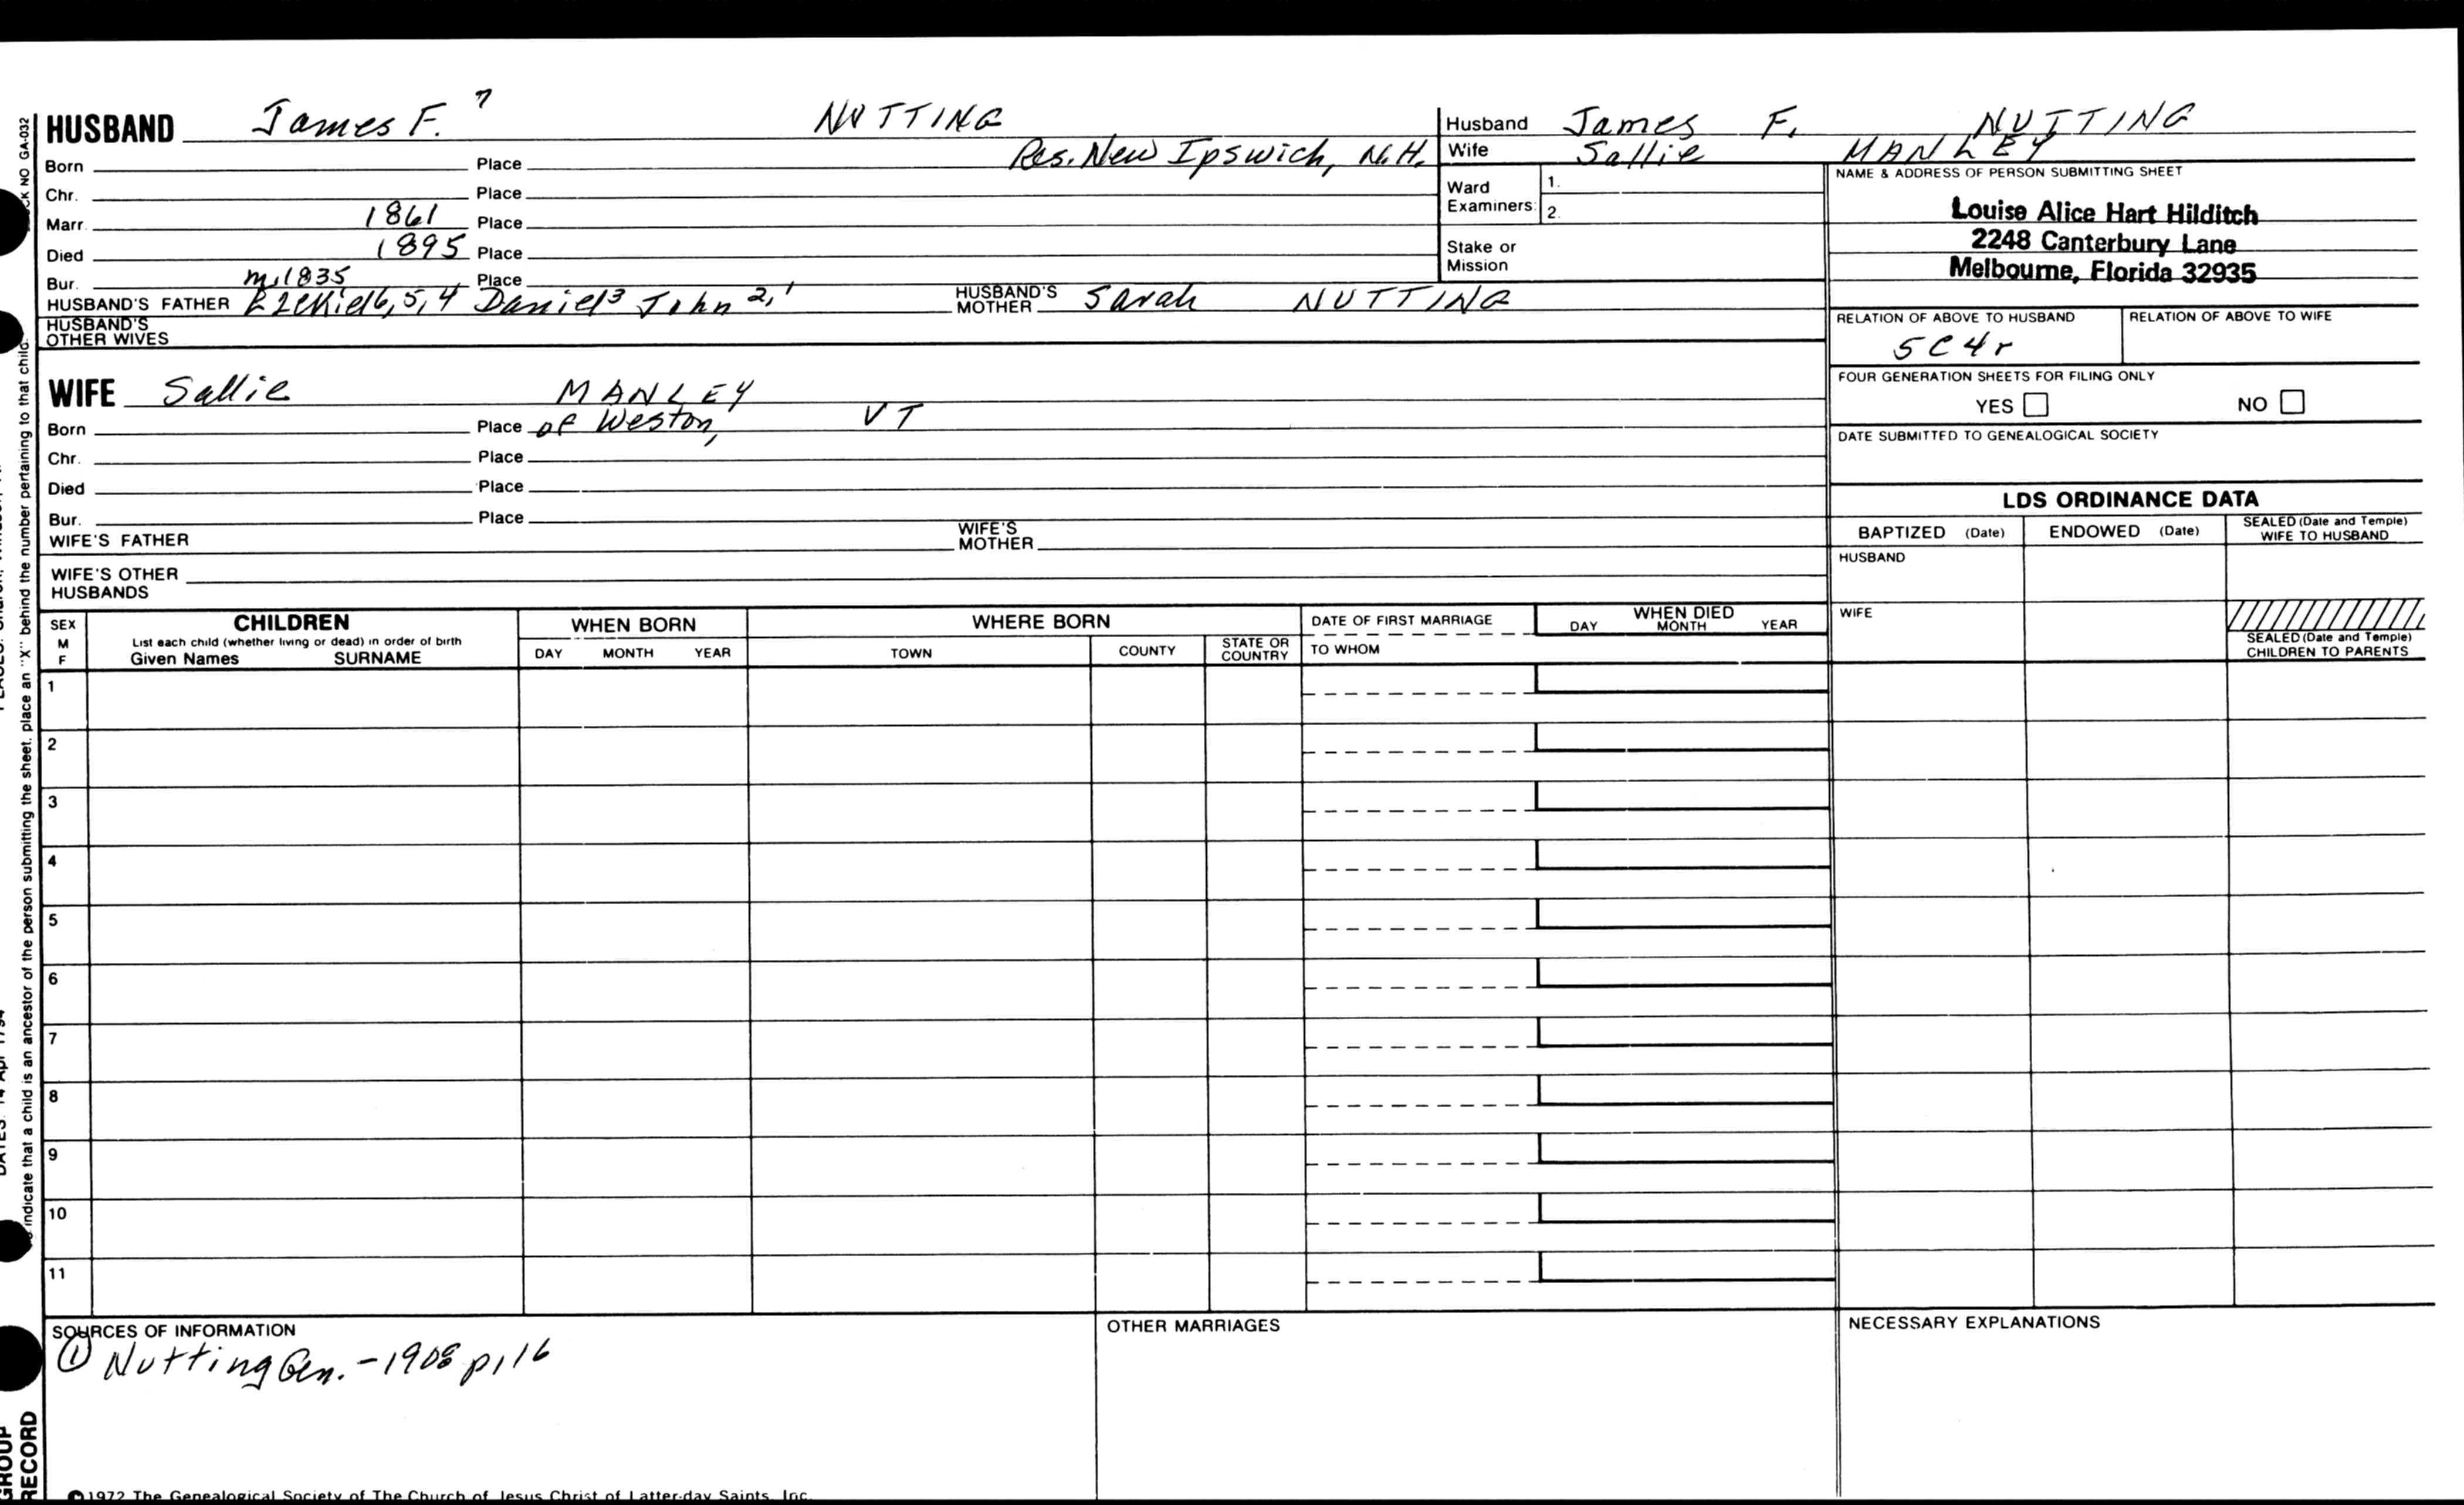 HUSBAND James F. 7 NUTTING
Res. New Ipswich, N.H.
Born Place
Chr. Place
Marr. 1861 Place
Died 1895 Place
Bur. m. 1835 Place
HUSBAND'S FATHER Ezekiel 6, 5, 4 Daniel 3 John 2, 1 HUSBAND'S MOTHER Sarah NUTTING
HUSBAND'S OTHER WIVES
WIFE Sallie MANLEY
Born Place of Weston, VT
Chr. Place
Died Place
Bur. Place
WIFE'S FATHER WIFE'S MOTHER
WIFE'S OTHER HUSBANDS
Husband James F. NUTTING
Wife Sallie MANLEY
Ward Examiners: 1.
2.
Stake or Mission
NAME & ADDRESS OF PERSON SUBMITTING SHEET
Louise Alice Hart Hilditch
2248 Canterbury Lane
Melbourne, Florida 32935
RELATION OF ABOVE TO HUSBAND RELATION OF ABOVE TO WIFE
5C4r
FOUR GENERATION SHEETS FOR FILING ONLY
YES NO
DATE SUBMITTED TO GENEALOGICAL SOCIETY
LDS ORDINANCE DATA
BAPTIZED (Date) ENDOWED (Date) SEALED (Date and Temple) WIFE TO HUSBAND
HUSBAND
WIFE
SEALED (Date and Temple) CHILDREN TO PARENTS
SEX M F
CHILDREN
List each child (whether living or dead) in order of birth
Given Names SURNAME
WHEN BORN
DAY MONTH YEAR
WHERE BORN
TOWN COUNTY STATE OR COUNTRY
DATE OF FIRST MARRIAGE
TO WHOM
WHEN DIED
DAY MONTH YEAR
1
2
3
4
5
6
7
8
9
10
11
SOURCES OF INFORMATION
① Nutting Gen. - 1908 p. 116
OTHER MARRIAGES
NECESSARY EXPLANATIONS
©1972 The Genealogical Society of The Church of Jesus Christ of Latter-day Saints, Inc.
NO GA-032
indicate that a child is an ancestor of the person submitting the sheet, place an "X" behind the number pertaining to that child.
DATES: 14 Apr 1794
GROUP
RECORD